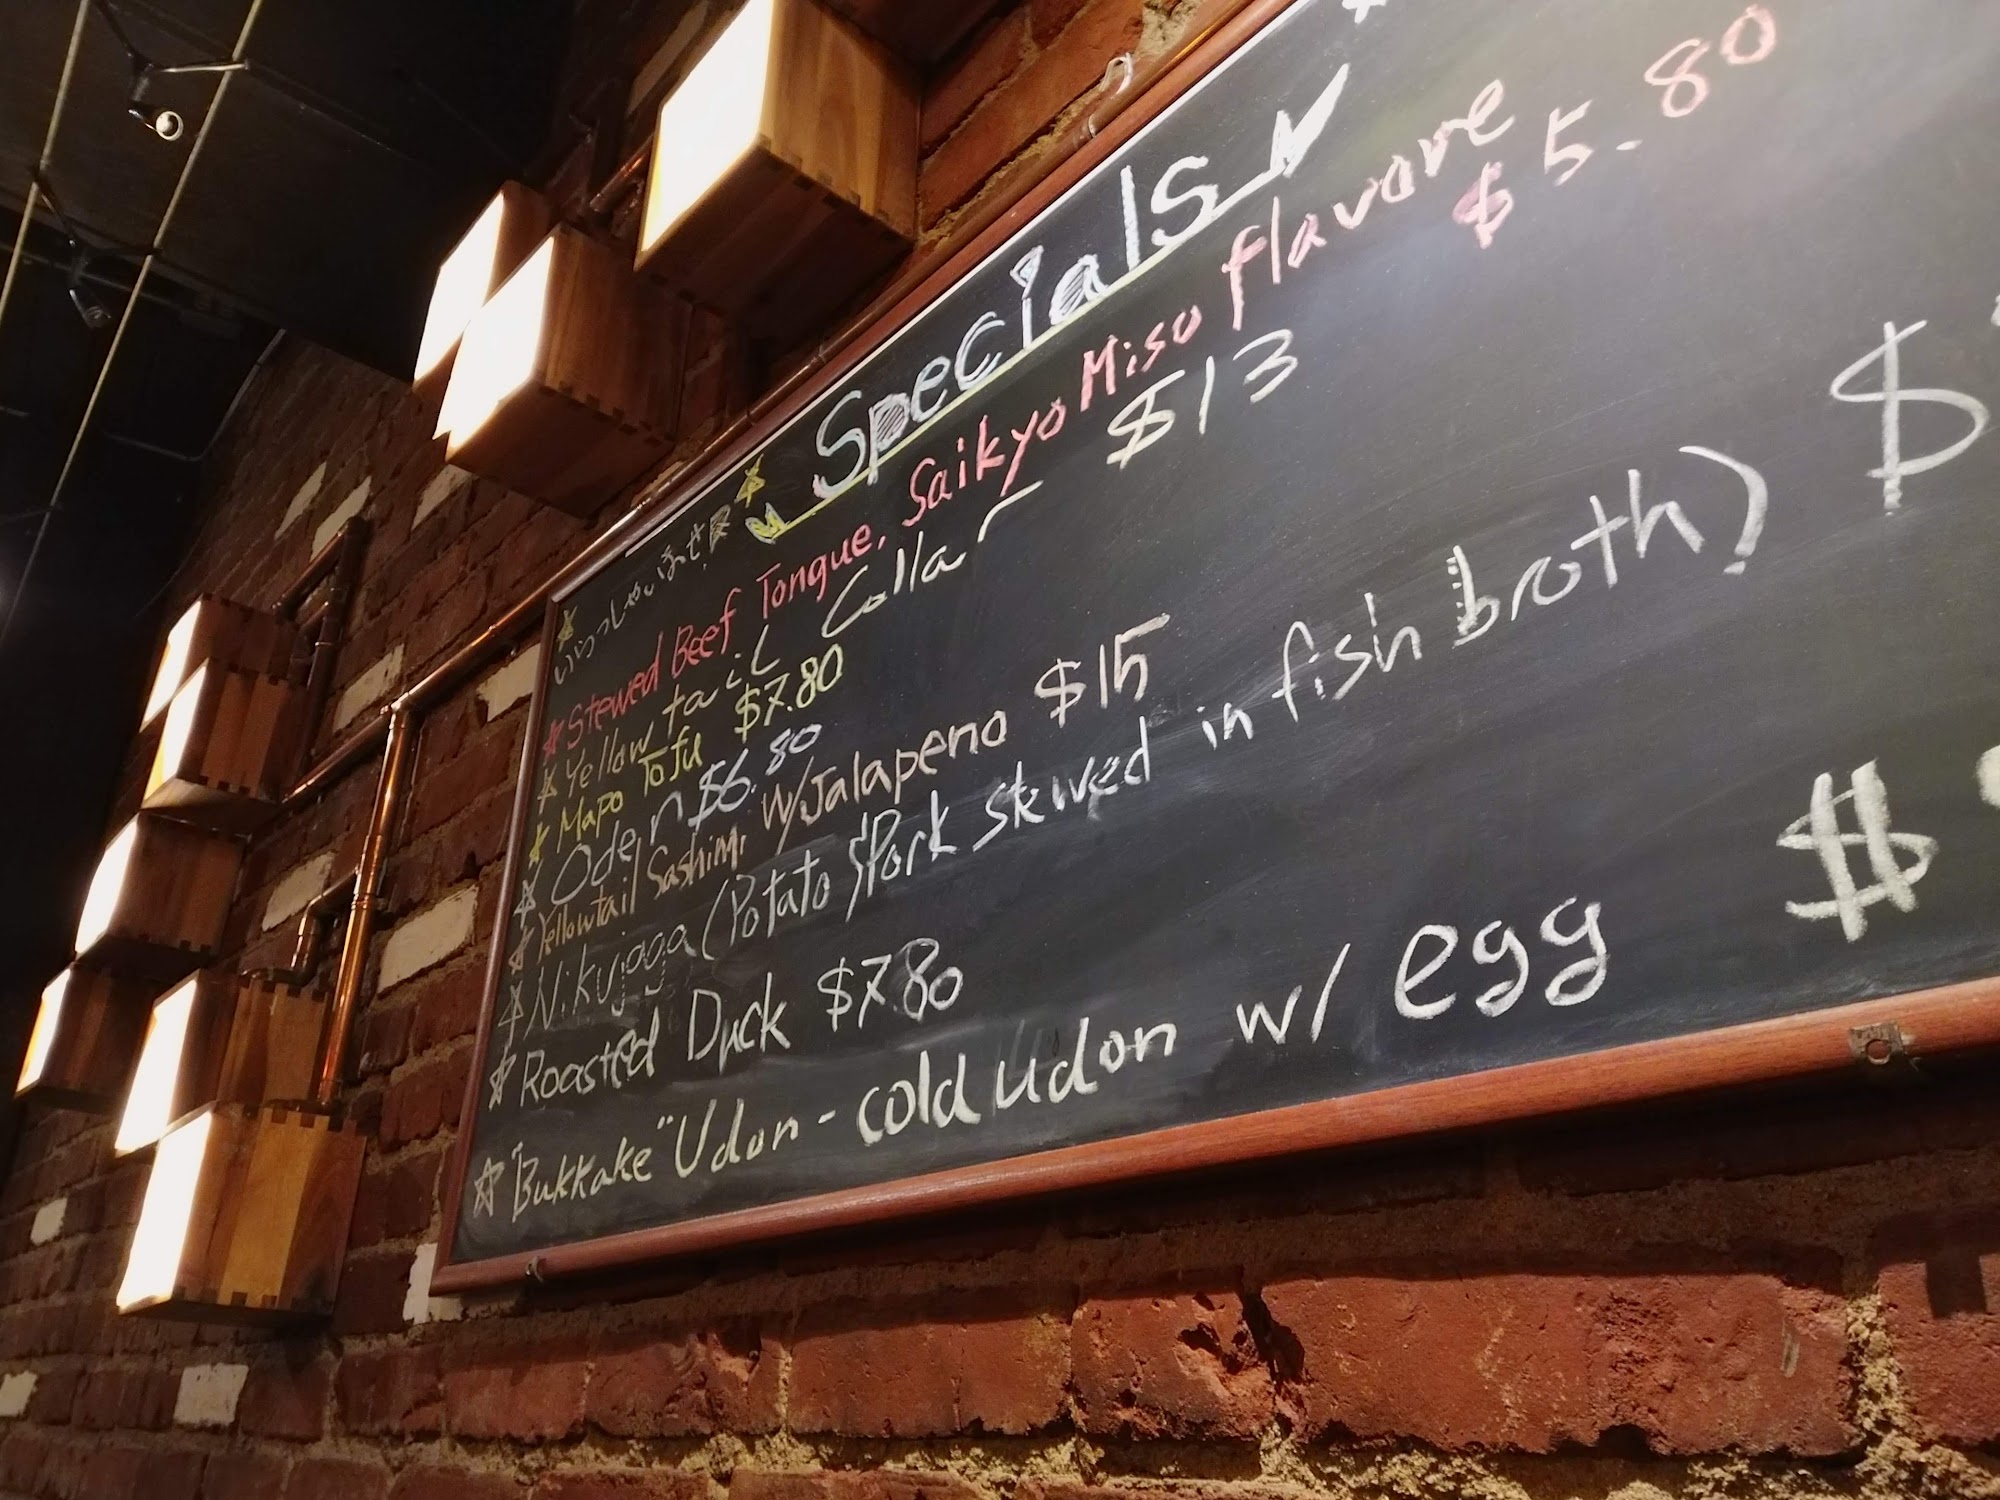 Specials
いらっしゃいませ
Stewed Beef Tongue, Saikyo Miso flavore $5.80
Yellowtail Collar $13
Mapo Tofu $7.80
Oden $6.80
Yellowtail Sashimi w/Jalapeno $15
Nikujaga (Potato & Pork stewed in fish broth) $
Roasted Duck $7.80
"Bukkake" Udon - cold udon w/ egg $